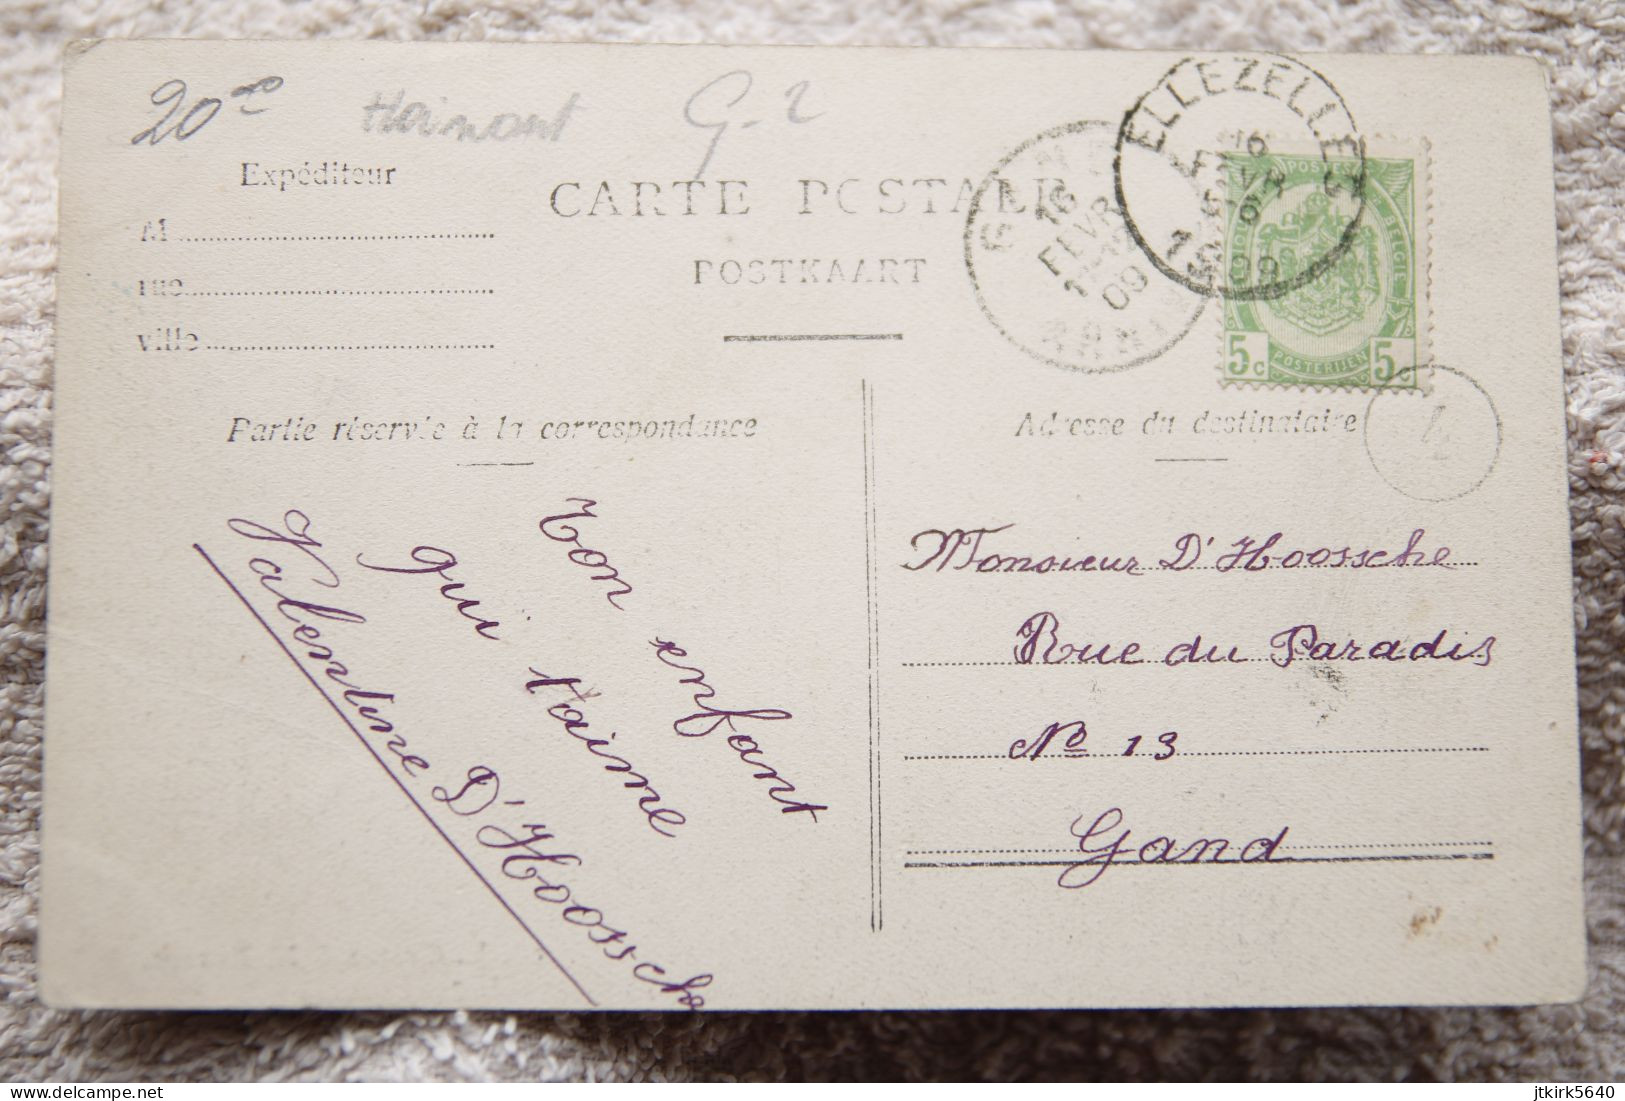 20
Hainaut
G-2
Expéditeur
M
rue
ville
CARTE POSTALE
POSTKAART
16
FEVR
09
ELLEZELLES
16
FEVR
1909
POSTES
BELGIE
POSTERIJEN
5c 5c
4
Partie réservée à la correspondance
Adresse du destinataire
Ton enfant
qui t'aime
Valentine D'Hoossche
Monsieur D'Hoossche
Rue du Paradis
No 13
Gand
jtkirk5640